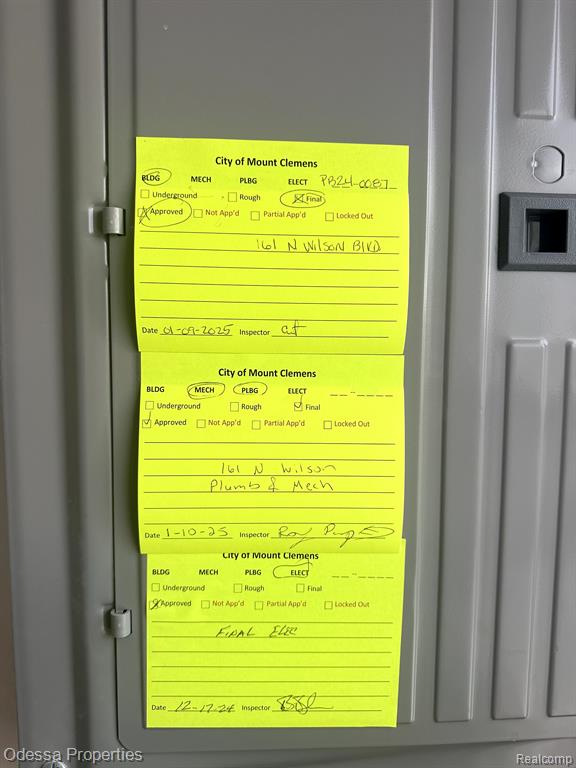 City of Mount Clemens
BLDG MECH PLBG ELECT PB24-0087
Underground Rough Final
Approved Not App'd Partial App'd Locked Out
161 N Wilson Blvd
Date 01-09-2025 Inspector
City of Mount Clemens
BLDG MECH PLBG ELECT
Underground Rough Final
Approved Not App'd Partial App'd Locked Out
161 N Wilson
Plumb & Mech
Date 1-10-25 Inspector
City of Mount Clemens
BLDG MECH PLBG ELECT
Underground Rough Final
Approved Not App'd Partial App'd Locked Out
FINAL ELEC
Date 12-17-24 Inspector
Odessa Properties
Realcomp